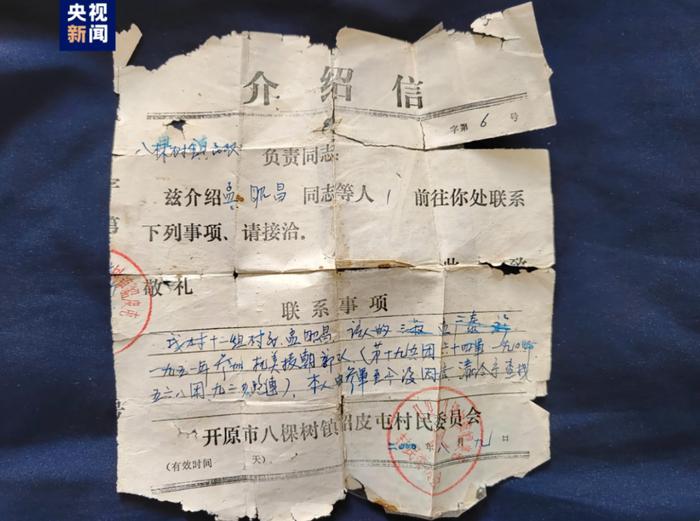 央视
新闻
介绍信
字第 6 号
八棵树镇
负责同志
兹介绍孟昭昌 同志等人 1 前往你处联系
下列事项、请接洽。
此 致
敬礼
联系事项
我村十二组村民孟昭昌,该人的
一九五一年参加抗美援朝部队(第十九兵团六十四军一九〇师
五六八团九二 连),本人 参军至今没回
开原市八棵树镇貂皮屯村民委员会
(有效时间 天) 2000年八月 九 日